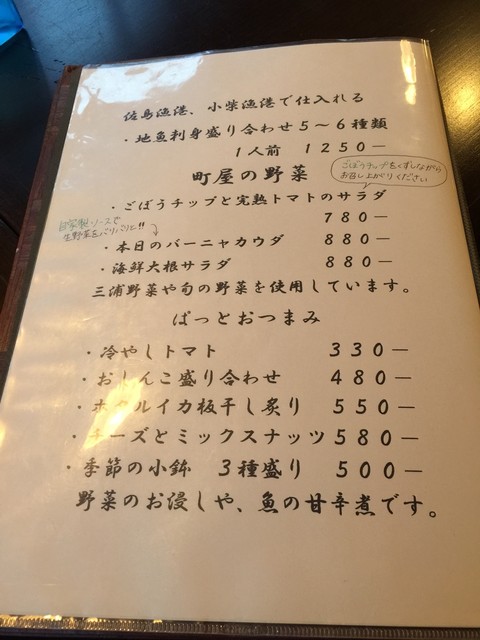 佐島漁港、小柴漁港で仕入れる
・地魚刺身盛り合わせ５～６種類
１人前　１２５０―
町屋の野菜
ごぼうチップをくずしながら
お召し上がりください
・ごぼうチップと完熟トマトのサラダ
７８０―
自家製ソースで
生野菜をバリバリと!!
・本日のバーニャカウダ　８８０―
・海鮮大根サラダ　８８０―
三浦野菜や旬の野菜を使用しています。
ぱっとおつまみ
・冷やしトマト　３３０―
・おしんこ盛り合わせ　４８０―
・ホタルイカ板干し炙り　５５０―
・チーズとミックスナッツ　５８０―
・季節の小鉢　３種盛り　５００―
野菜のお浸しや、魚の甘辛煮です。